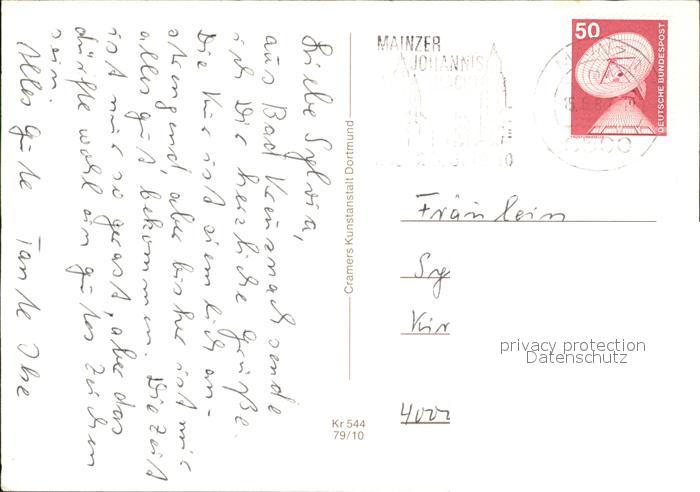 Liebe Sylvia,
aus Bad Kreuznach sende
ich Dir herzliche Grüße.
Die Kur ist ziemlich an-
strengend, aber bisher ist mir
alles gut bekommen. Die Zeit
ist nur so gerast, aber das
dürfte wohl ein gutes Zeichen
sein.
Alles Gute Tante Ilse
Cramers Kunstanstalt Dortmund
Kr 544
79/10
MAINZER
JOHANNIS
50
DEUTSCHE BUNDESPOST
Fräulein
Sy
Kir
400
privacy protection
Datenschutz